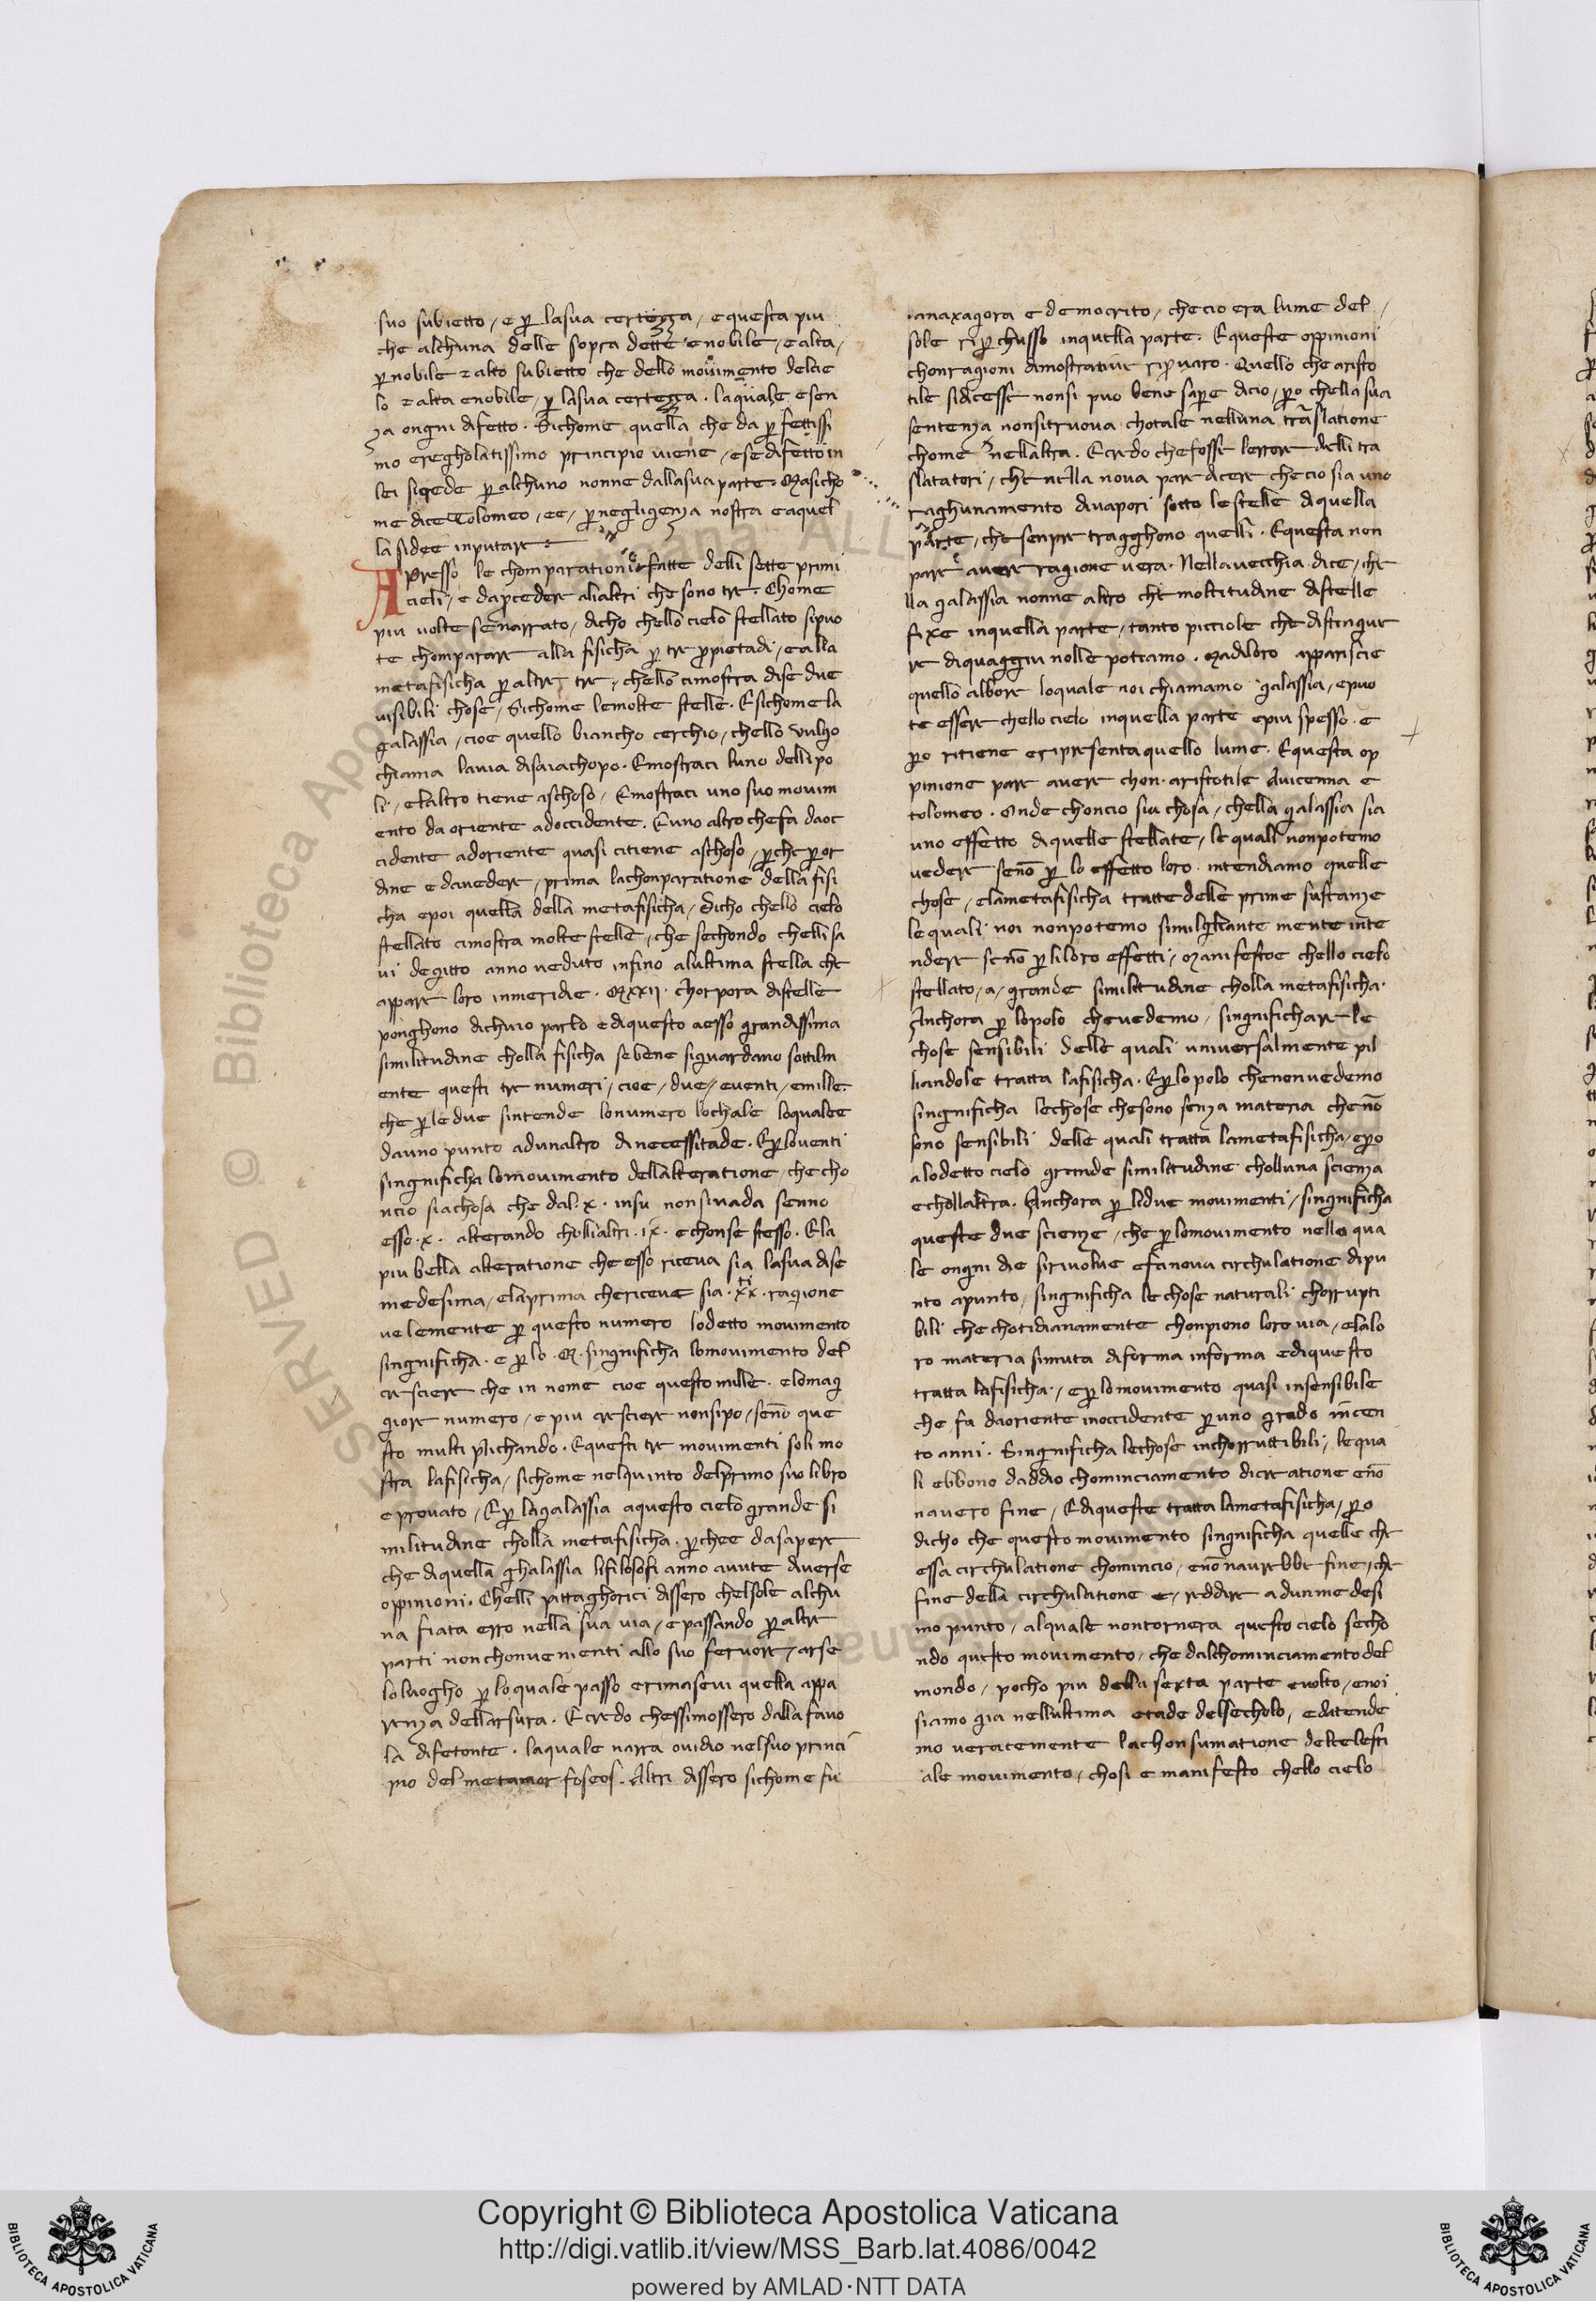 suo subietto / e ꝑ lasua certezza / e questa piu
che alchuna delle sopra dette e nobile / e alta /
ꝑ nobile ⁊ alto subietto che dello mouimento delcie
lo ⁊ alta enobile / ꝑ lasua certezza . laquale esen
za ongni difetto . Sichome quella che da ꝑfettissi
mo eregholatissimo principio uiene / ese difetto in
lei sicrede ꝑ alchuno nonne dallasua parte . Masicho
me dice Tolomeo / ee / ꝑ negligenza nostra e aquel
la sidee inputare
Apresso le chomparationi fatte delli sette primi
cieli / e daꝓceder alialtri che sono tre . Chome
piu uolte senarrato / dicho chello cielo stellato sipuo
te chomparare alla fisicha ꝑ tre ꝓpietadi / e alla
metafisicha ꝑ altre tre / chello cimostra dise due
uisibili chose / Sichome lemolte stelle . Esichome la
galassia / cioe quello biancho cerchio / chello uulgho
chiama lauia disaiachopo . Emostraci luno delli po
li / elaltro tiene aschoso / Emostraci uno suo mouim
ento da oriente adoccidente . Euno altro chefa daoc
cidente adoriente quasi citiene aschoso / ꝑche ꝑ or
dine e dauedere / prima lachonparatione della fisi
cha epoi quella della metafisicha / Dicho chello cielo
stellato cimostra molte stelle / che sechondo chelli sa
ui degitto anno ueduto infino alultima stella che
appare loro inmeridie . Mxxij . chorpora distelle
ponghono dichuio parlo ediquesto aesso grandissima
similitudine cholla fisicha sebene siguardano sottilm
ente questi tre numeri / cioe / due / euenti / emille
che ꝑ le due sintende lonumero lochale loqualee
dauno punto adunaltro dinecessitade . Eꝑ louenti
singnificha lomouimento dellalteratione / che cho
ncio siachosa che dal . x . insu nonsiuada senno
esso . x . alterando cholli altri . ix . echonse stesso . Ela
piu bella alteratione che esso riceua sia lasua dise
medesima / elaprima chericeue sia . xx . ragione
uelemente ꝑ questo numero lodetto mouimento
singnificha . e ꝑ lo . M . singnificha lomouimento del
cresciere che in nome cioe questo mille . elomag
giore numero / e piu cresciere nonsipo / senō que
sto multiplichando . Equesti tre mouimenti soli mo
stra lafisicha / sichome nelquinto delprimo suo libro
e prouato / Eꝑ lagalassia aquesto cielo grande si
militudine cholla metafisicha . ꝑchee dasapere
che diquella ghalassia lifilosofi anno auute diuerse
oppinioni . Chelli pittaghorici dissero chelsole alchu
na fiata erro nella sua uia / e passando ꝑ altre
parti nonchonuenienti allo suo feruore / arse
loluogho ꝑ loquale passo erimaseui quella appa
renza dellarsura . Ecredo chessimossero dalla fauo
la difetonte . laquale narra ouidio nelsuo princi
pio del metamorfoseos . Altri dissero sichome fu
anaxagora e democrito / checio era lume del
sole riꝑchusso inquella parte . Equeste oppinioni
chonragioni dimostratiue riprouaro . Quello che aristo
tile sidicesse nonsi puo bene saꝑe dicio / ꝑo chella sua
sentenza nonsitruoua chotale nelluna trāslatione
chome nellaltra . Ecredo chefosse lerrore delli tra
slatatori / che nella nuoua pare dicere checio sia uno
raghunamento diuapori sotto le stelle diquella
parte / che senpre tragghono quelli . Equesta non
pare auere ragione uera . Nellauecchia dice / che
lla galassia nonne altro che moltitudine distelle
fixe inquella parte / tanto picciole che distingue
re diquaggiu nolle potiamo . Madiloro apparisce
quello albore loquale noi chiamamo galassia / epuo
te essere chello cielo inquella parte epiu spesso . e
ꝑo ritiene eripresenta quello lume . Equesta op
pinione pare auere chon . aristotile Auicenna e
tolomeo . Onde choncio sia chosa / chella galassia sia
uno effetto diquelle stellate / le quali nonpotemo
uedere senō ꝑ lo effetto loro . intendiamo quelle
chose / elametafisicha tratte delle prime sustanze
lequali noi nonpotemo similghante mente inte
ndere senō ꝑ liloro effetti / Manifestoe chello cielo
stellato / a / grande similitudine cholla metafisicha .
Anchora ꝑ lopolo chevedemo / singnifichare le
chose sensibili delle quali uniuersalmente pil
liandole tratta lafisicha . Eꝑ lo polo chenonuedemo
singnificha lechose chesono senza materia chenō
sono sensibili delle quali tratta lametafisicha / eꝑo
alodetto cielo grande similitudine cholluna scienza
echollaltra . Anchora ꝑ lidue mouimenti / singnificha
queste due scienze / che ꝑ lomouimento nello qua
le ongni die siriuolue efanoua circhulatione dipu
nto apunto / singnificha le chose naturali chorrupti
bili che chotidianamente chonpieno loro uia / elalo
ro materia simuta diforma informa ediquesto
tratta lafisicha / e ꝑ lomouimento quasi insensibile
che fa daoriente inoccidente ꝑ uno grado incen
to anni . Singnificha lechose inchorruttibili / lequa
li ebbono daddio chominciamento dicreatione enō
nauero fine / Ediqueste tratta lametafisicha / ꝑo
dicho che questo mouimento singnificha quelle che
essa circhulatione chomincio / enō naurebbe fine / che
fine della circhulatione e / reddire adunmedesi
mo punto / alquale nontornera questo cielo secho
ndo questo mouimento / che dalchominciamento del
mondo / pocho piu della sexta parte euolto / enoi
siamo gia nellultima etade delsecholo / edatende
mo ueracemente lachonsumatione delcelesti
ale mouimento / chosi e manifesto chello cielo
Copyright © Biblioteca Apostolica Vaticana
http://digi.vatlib.it/view/MSS_Barb.lat.4086/0042
powered by AMLAD·NTT DATA
BIBLIOTECA APOSTOLICA VATICANA
BIBLIOTECA APOSTOLICA VATICANA